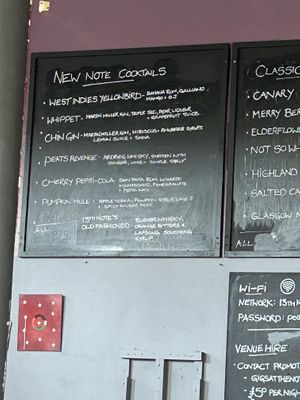 NEW NOTE COCKTAILS
WEST INDIES YELLOWBIRD - BANANA RUM, GALLIANO,
MANGO + O.J
WHIPPET - MARTIN MILLER GIN, TRIPLE SEC, PEAR LIQUEUR
+ GRAPEFRUIT JUICE
CHIN GIN - MARTIN MILLER GIN, HIBISCUS + RHUBARB SYRUPS
LEMON JUICE + SODA
PEATS REVENGE - ARDBEG WHISKY, SHAKEN WITH
GINGER, LIME + SIMPLE SYRUP
CHERRY PEPSI-COLA - DON PAPA RUM, LUXARDO
MARASCHINO, POMEGRANATE
+ PEPSI MAX
PUMPKIN MULE - APPLE VODKA, PUMPKIN SYRUP, LIME +
SPICY GINGER BEER
13TH NOTE'S
OLD FASHIONED - BLENDED WHISKY,
ORANGE BITTERS +
LAPSANG SOUCHONG
SYRUP
ALL
CLASSIC
CANARY
MERRY BER
ELDERFLOW
NOT SO WH
HIGHLAND
SALTED CA
GLASGOW M
ALL
WI-FI
NETWORK: 13TH N
PASSWORD:
VENUE HIRE
- CONTACT PROMOT
- GIGSATTHENOT
- £50 PER NIGH